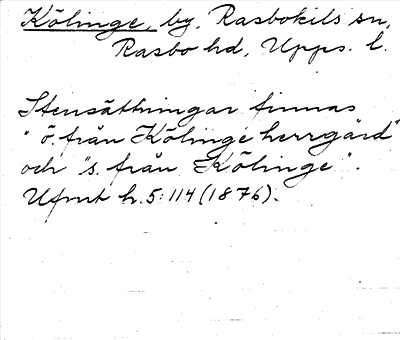 Kölinge, by, Rasbokils sn,
Rasbo hd, Upps. l.
Stensättningar finnas
"ö. från Kölinge herrgård"
och "s. från Kölinge".
Ufmt h. 5:114 (1876).